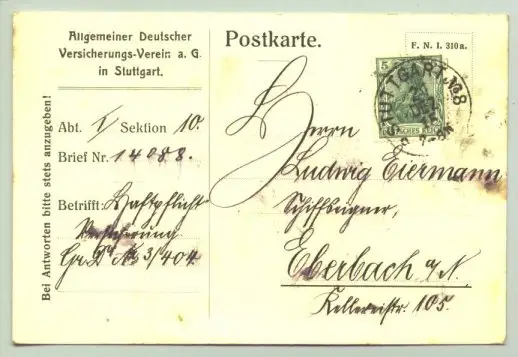 Allgemeiner Deutscher
Versicherungs-Verein a. G.
in Stuttgart.
Bei Antworten bitte stets anzugeben!
Abt. I Sektion 10.
Brief Nr. 14088.
Betrifft: Haftpflicht-
Versicherung
Gr. D No 3/404
Postkarte.
F. N. I. 310a.
5
DEUTSCHES REICH
STUTTGART No 8
Herrn
Ludwig Eiermann
Schiffseigner,
Eberbach a/N.
Kellereistr. 105.